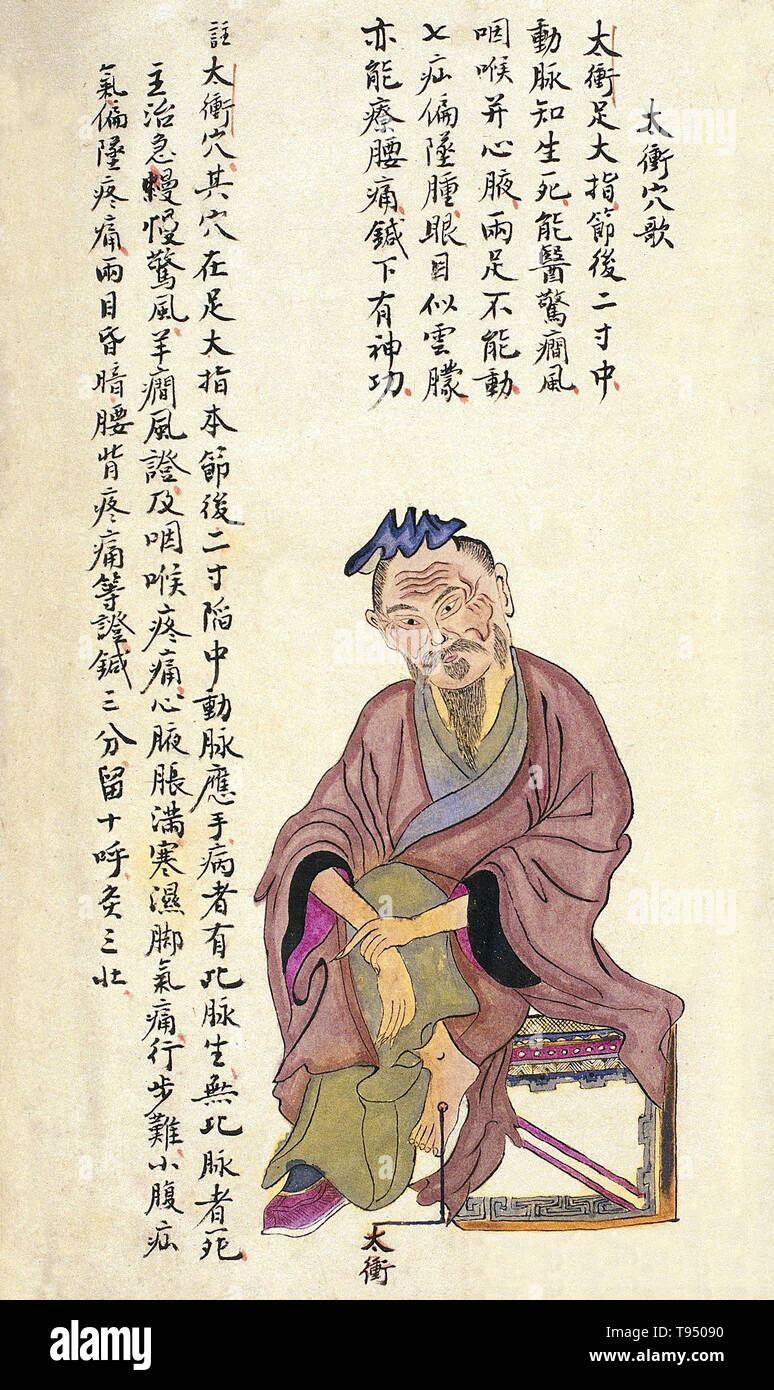 太衝穴歌
太衝足大指節後二寸中
動脉知生死能醫驚癇風
咽喉并心腋兩足不能動
七疝偏墜腫眼目似雲朦
亦能療腰痛鍼下有神功
註太衝穴其穴在足大指本節後二寸陷中動脉應手病者有此脉生無此脉者死
主治急慢驚風羊癇風證及咽喉疼痛心腋脹滿寒濕脚氣痛行步難小腹疝
氣偏墜疼痛兩目昏暗腰背疼痛等證鍼三分留十呼灸三壯
太衝
alamy
Image ID: T95090
www.alamy.com